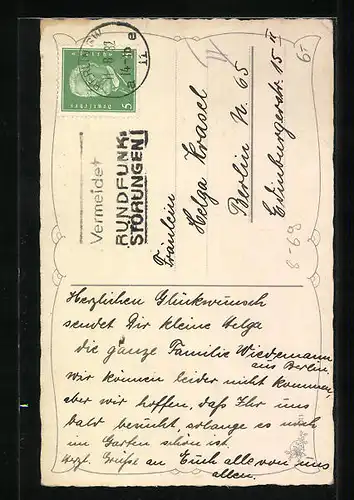 Vermeidet
RUNDFUNK-
STÖRUNGEN
Fräulein
Helga Krasel
Berlin N. 65
Edinburgerstr. 15 II
6,-
8-69
Herzlichen Glückwunsch
sendet Dir kleine Helga
die ganze Familie Wiedemann
aus Berlin,
wir können leider nicht kommen,
aber wir hoffen, daß Ihr uns
bald besucht, solange es noch
im Garten schön ist.
Herzl. Grüße an Euch alle von uns
allen.